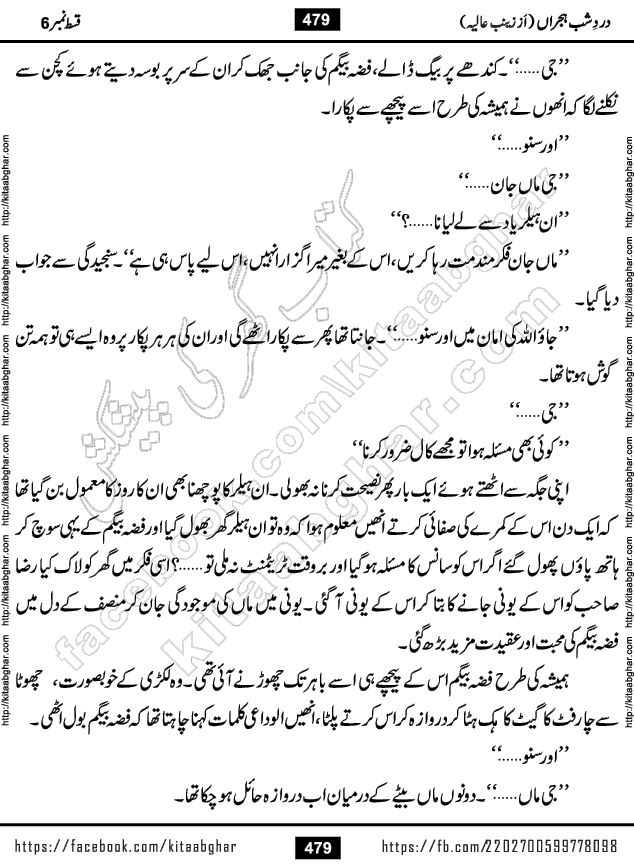 دردِ شبِ ہجراں (از زینب عالیہ)
479
قسط نمبر 6
’’جی......‘‘۔ کندھے پر بیگ ڈالے، فضہ بیگم کی جانب جھک کر ان کے سر پر بوسہ دیتے ہوئے کچن سے
نکلنے لگا کہ انھوں نے ہمیشہ کی طرح اسے پیچھے سے پکارا۔
’’اور سنو......‘‘
’’جی ماں جان......‘‘
’’ان ہیلر یاد سے لے لیا نا......؟‘‘
’’ماں جان فکر مند مت رہا کریں، اس کے بغیر میرا گزارا نہیں، اس لیے پاس ہی ہے‘‘۔ سنجیدگی سے جواب
دیا گیا۔
’’جاؤ اللہ کی امان میں اور سنو......‘‘۔ جانتا تھا پھر سے پکارا اٹھے گی اور ان کی ہر ہر پکار پر وہ ایسے ہی تو ہمہ تن
گوش ہوتا تھا۔
’’جی......‘‘
’’کوئی بھی مسئلہ ہوا تو مجھے کال ضرور کرنا‘‘
اپنی جگہ سے اٹھتے ہوئے ایک بار پھر نصیحت کرنا نہ بھولی۔ ان ہیلر کا پوچھنا بھی ان کا روز کا معمول بن گیا تھا
کہ ایک دن اس کے کمرے کی صفائی کرتے انھیں معلوم ہوا کہ وہ تو ان ہیلر گھر بھول گیا اور فضہ بیگم کے یہی سوچ کر
ہاتھ پاؤں پھول گئے اگر اس کو سانس کا مسئلہ ہو گیا اور بروقت ٹریٹمنٹ نہ ملی تو......؟ اسی فکر میں گھر کو لاک کیا رضا
صاحب کو اس کے یونی جانے کا بتا کر اس کے یونی آ گئی۔ یونی میں ماں کی موجودگی جان کر منصف کے دل میں
فضہ بیگم کی محبت اور عقیدت مزید بڑھ گئی۔
ہمیشہ کی طرح فضہ بیگم اس کے پیچھے ہی اسے باہر تک چھوڑنے آئی تھی۔ وہ لکڑی کے خوبصورت، چھوٹا
سے چار فٹ کا گیٹ کا ہک ہٹا کر دروازہ کراس کرتے پلٹا، انھیں الوداعی کلمات کہنا چاہتا تھا کہ فضہ بیگم بول اٹھی۔
’’اور سنو......‘‘
’’جی ماں......‘‘۔ دونوں ماں بیٹے کے درمیان اب دروازہ حائل ہو چکا تھا۔
http://kitaabghar.com http://kitaabghar.com http://kitaabghar.com http://kitaabghar.com http://kitaabghar.com http://kitaabghar.com
http://kitaabghar.com http://kitaabghar.com http://kitaabghar.com http://kitaabghar.com http://kitaabghar.com http://kitaabghar.com
کتاب گھر کی پیشکش
facebook.com\kitaabghar
kitaabghar.com
https://facebook.com/kitaabghar
479
https://fb.com/2202700599778098